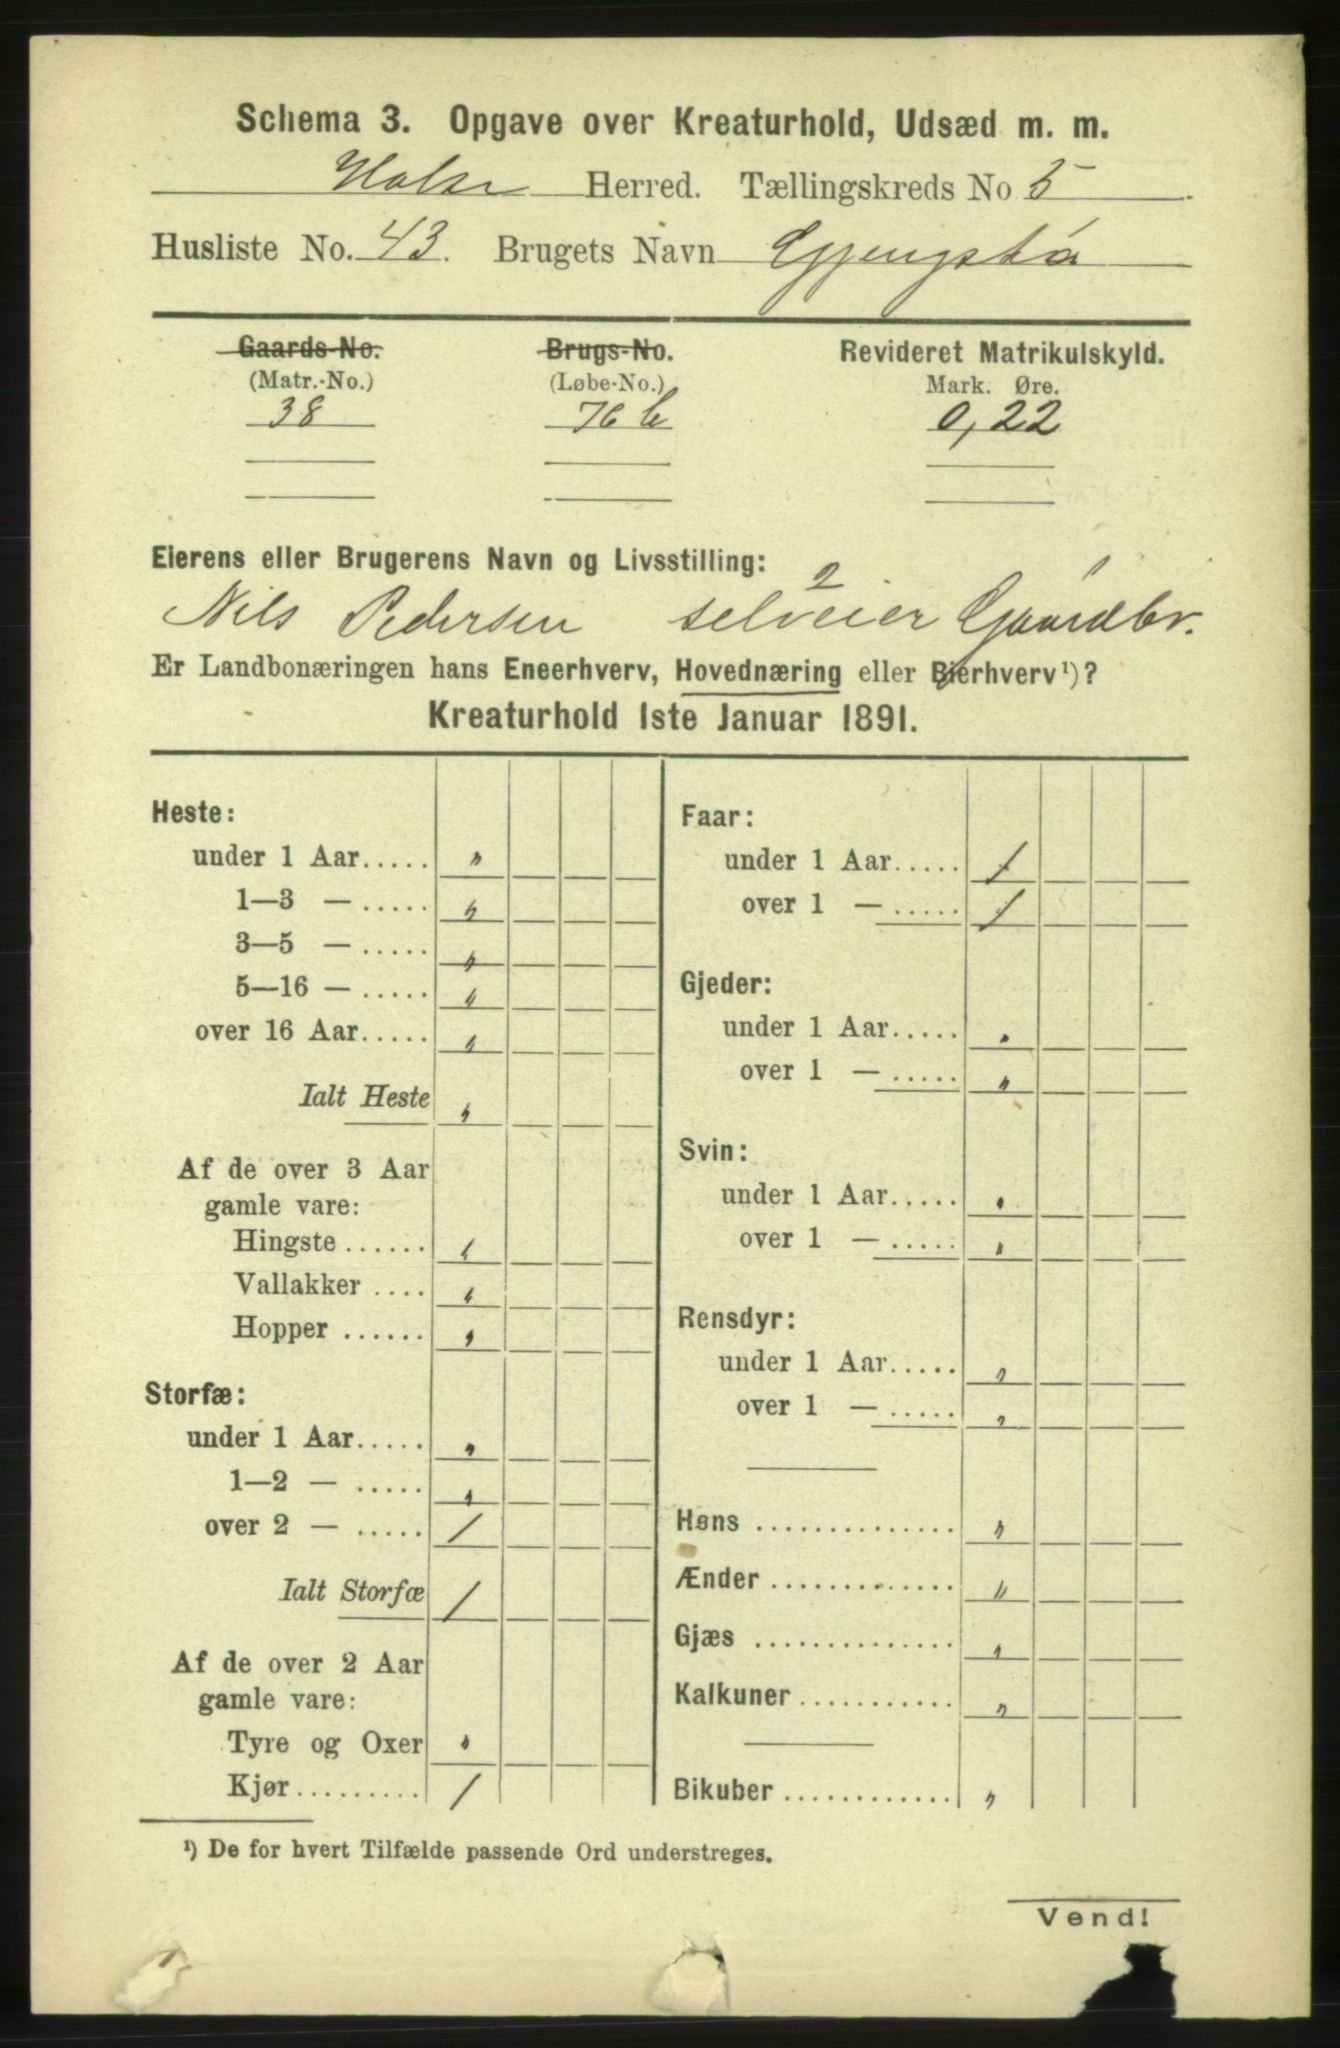 Schema 3. Opgave over Kreaturhold, Udsæd m. m.
Halse Herred. Tællingskreds No 5
Husliste No. 43. Brugets Navn Gjengstø
Gaards-No. Brugs-No. Revideret Matrikulskyld.
(Matr.-No.) (Løbe-No.) Mark. Øre.
38 76 b 0,22
Eierens eller Brugerens Navn og Livsstilling:
2
Nils Pedersen selveier Gaardbr.
Er Landbonæringen hans Eneerhverv, Hovednæring eller Bierhverv¹)?
Kreaturhold 1ste Januar 1891.
Heste:
under 1 Aar..... "
1—3 — ..... "
3—5 — ..... "
5—16 — ..... "
over 16 Aar..... "
Ialt Heste "
Af de over 3 Aar
gamle vare:
Hingste ...... "
Vallakker .... "
Hopper ...... "
Storfæ:
under 1 Aar..... "
1—2 — ..... "
over 2 — ..... 1
Ialt Storfæ 1
Af de over 2 Aar
gamle vare:
Tyre og Oxer "
Kjør......... 1
Faar:
under 1 Aar..... 1
over 1 — ..... 1
Gjeder:
under 1 Aar..... "
over 1 — ..... "
Svin:
under 1 Aar..... "
over 1 — ..... "
Rensdyr:
under 1 Aar..... "
over 1 — ..... "
Høns ............... "
Ænder .............. "
Gjæs ............... "
Kalkuner ............ "
Bikuber ............. "
¹) De for hvert Tilfælde passende Ord understreges.
Vend!